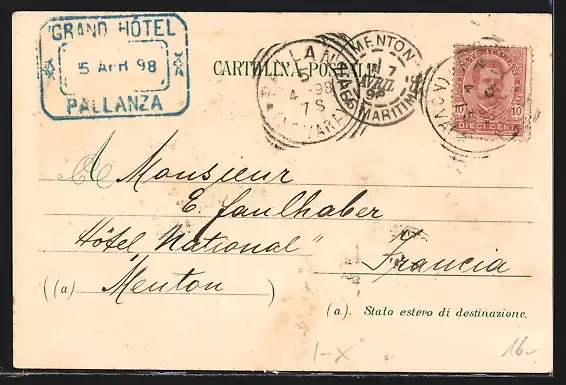 GRAND HÔTEL
5 APR 98
PALLANZA
CARTOLINA POSTALE
PALLANZA
5
4-98
7 S
(NOVARA)
MENTON
7
98
ALPES MARITIMES
10
DIECI CENT.
A Monsieur
E. Faulhaber
Hôtel National"
Francia
(a) Menton )
(a). Stato estero di destinazione.
1-X
16-